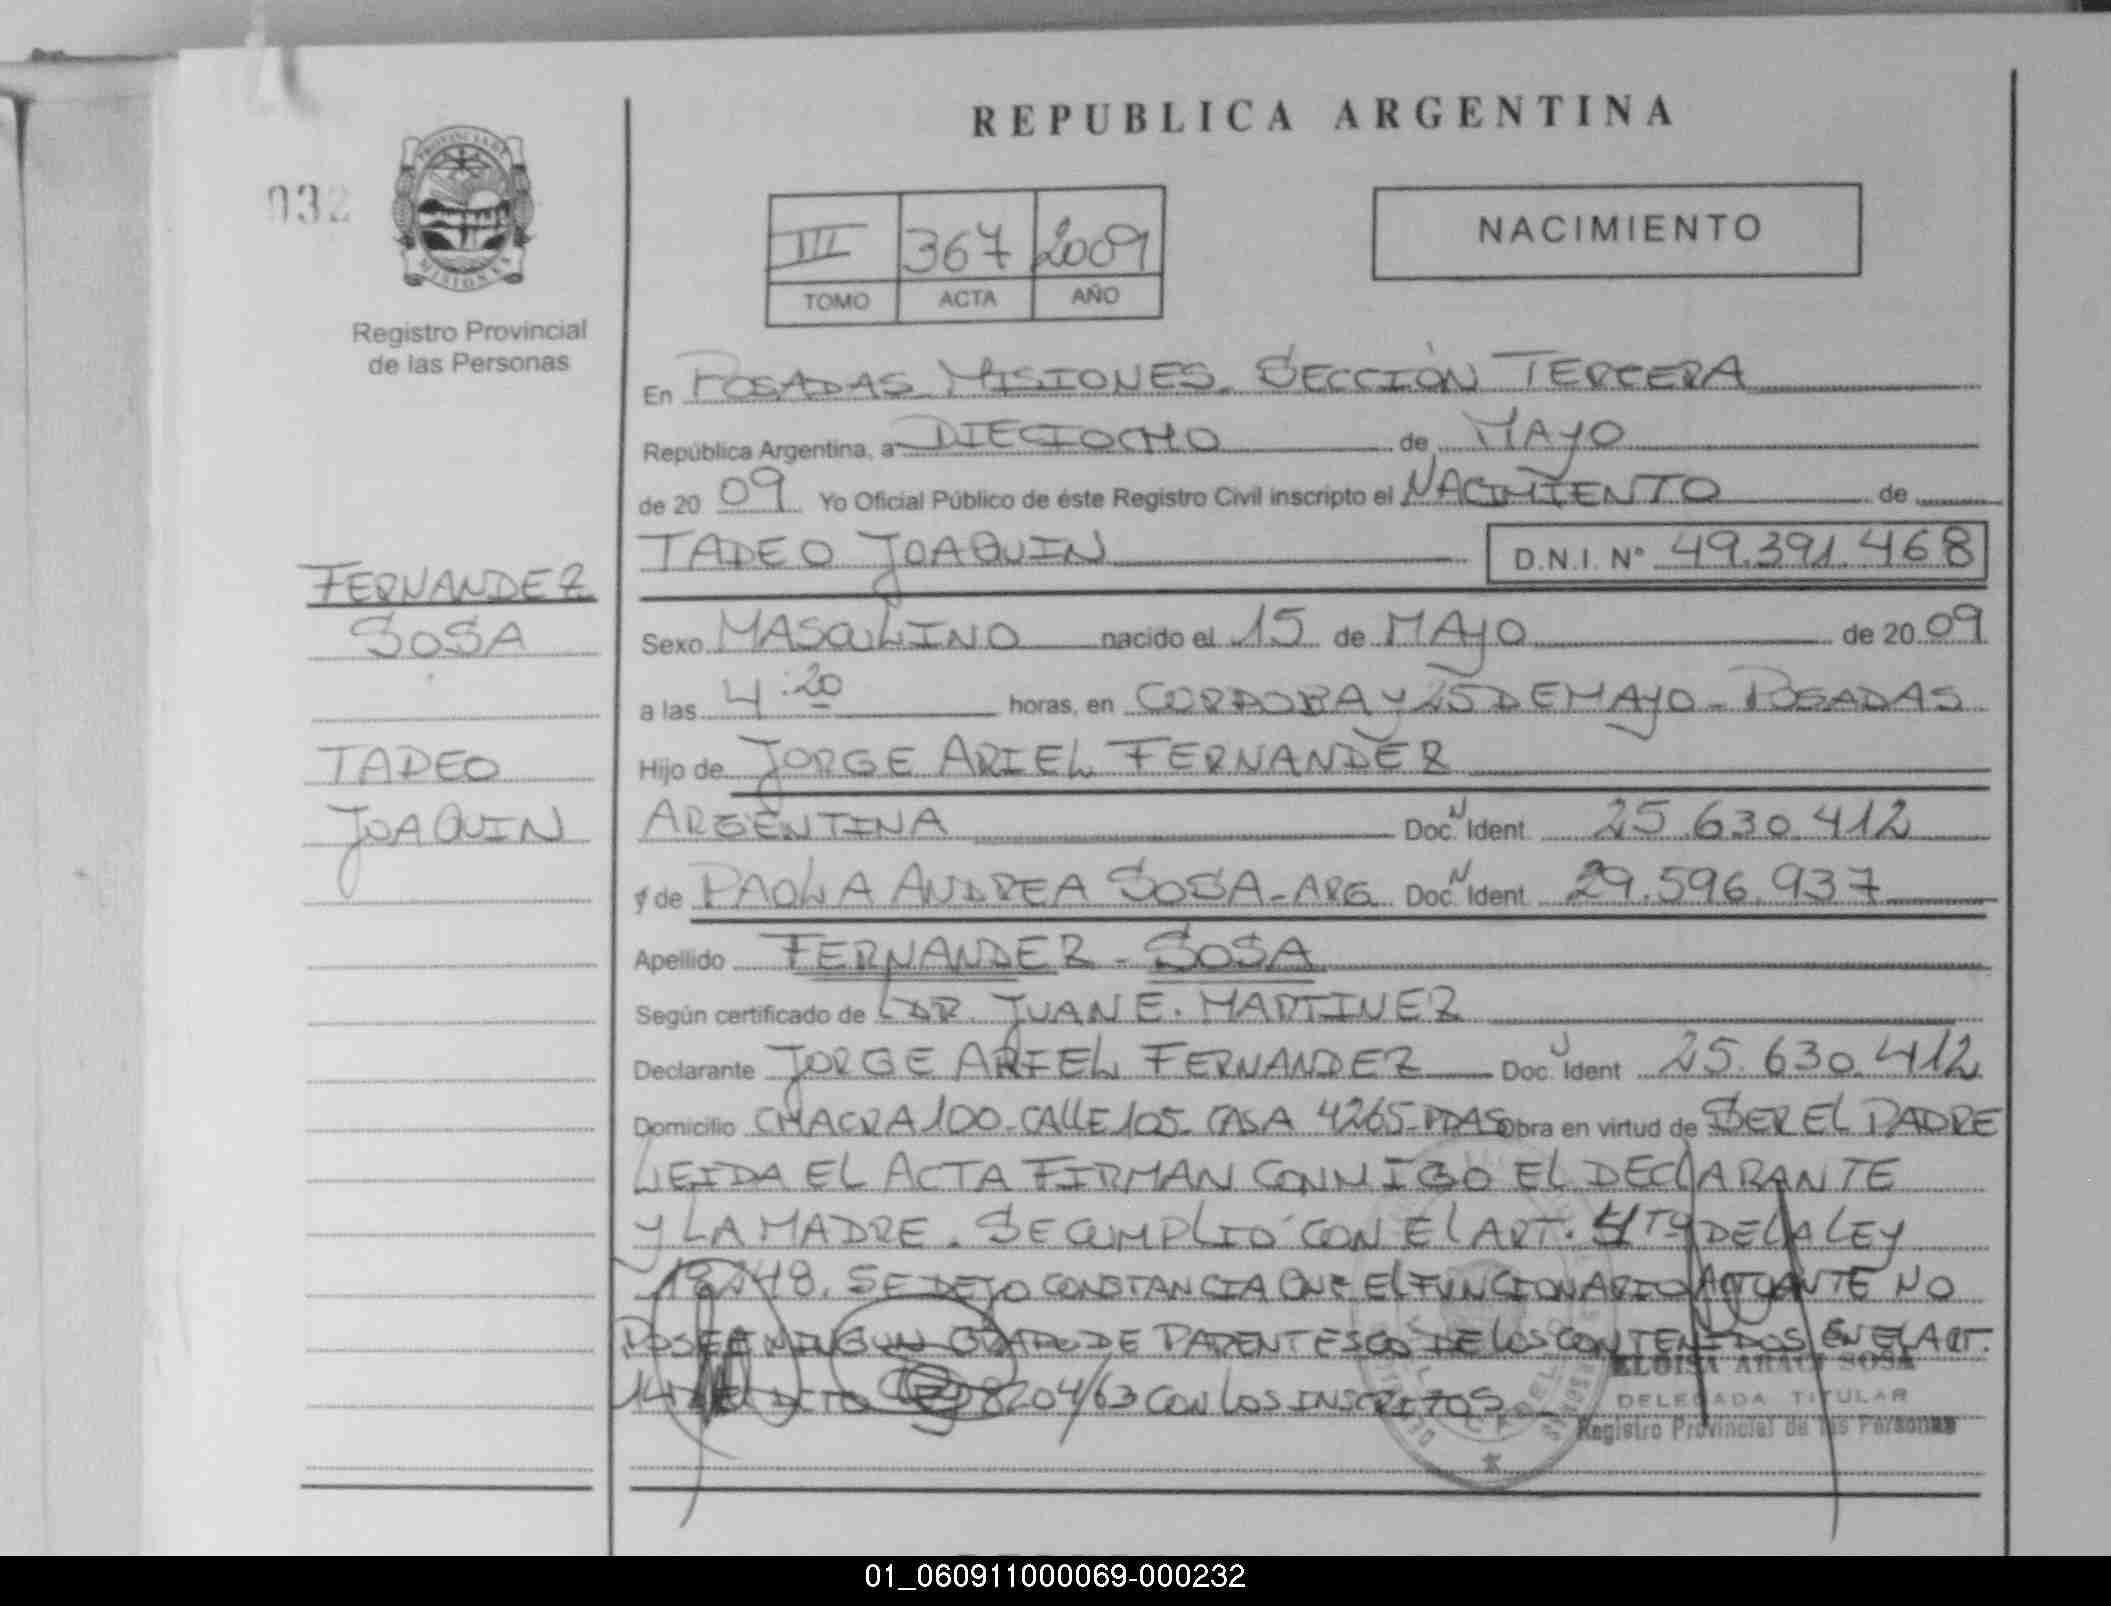 REPUBLICA ARGENTINA
032
PROVINCIA DE
MISIONES
Registro Provincial
de las Personas
III 367 2009
TOMO ACTA AÑO
NACIMIENTO
En POSADAS MISIONES. SECCIÓN TERCERA
República Argentina, a DIECIOCHO de MAYO
de 20 09 Yo Oficial Público de éste Registro Civil inscripto el NACIMIENTO de
TADEO JOAQUIN D.N.I. Nº 49.391.468
FERNANDEZ
SOSA
TADEO
JOAQUIN
Sexo MASCULINO nacido el 15 de MAYO de 20 09
a las 4:20 horas, en CORDOBA y 25 DE MAYO - POSADAS
Hijo de JORGE ARIEL FERNANDEZ
ARGENTINA Doc. N Ident 25.630.412
y de PAOLA ANDREA SOSA - ARG. Doc. N Ident 29.596.937
Apellido FERNANDEZ - SOSA
Según certificado de DR. JUAN E. MARTINEZ
Declarante JORGE ARIEL FERNANDEZ Doc. Ident 25.630.412
Domicilio CHACRA 100 - CALLE 105 - CASA 4265 - PDAS obra en virtud de SER EL PADRE
LEIDA EL ACTA FIRMAN CONMIGO EL DECLARANTE
Y LA MADRE. SE CUMPLIO CON EL ART. 4TO DE LA LEY
18248. SE DEJO CONSTANCIA QUE EL FUNCIONARIO ACTUANTE NO
POSEA NINGUN GRADO DE PARENTESCO DE LOS CONTENIDOS EN EL ART.
14 DEL DCTO 8204/63 CON LOS INSCRITOS
ELOISA SOSA
DELEGADA TITULAR
Registro Provincial de las Personas
01_060911000069-000232